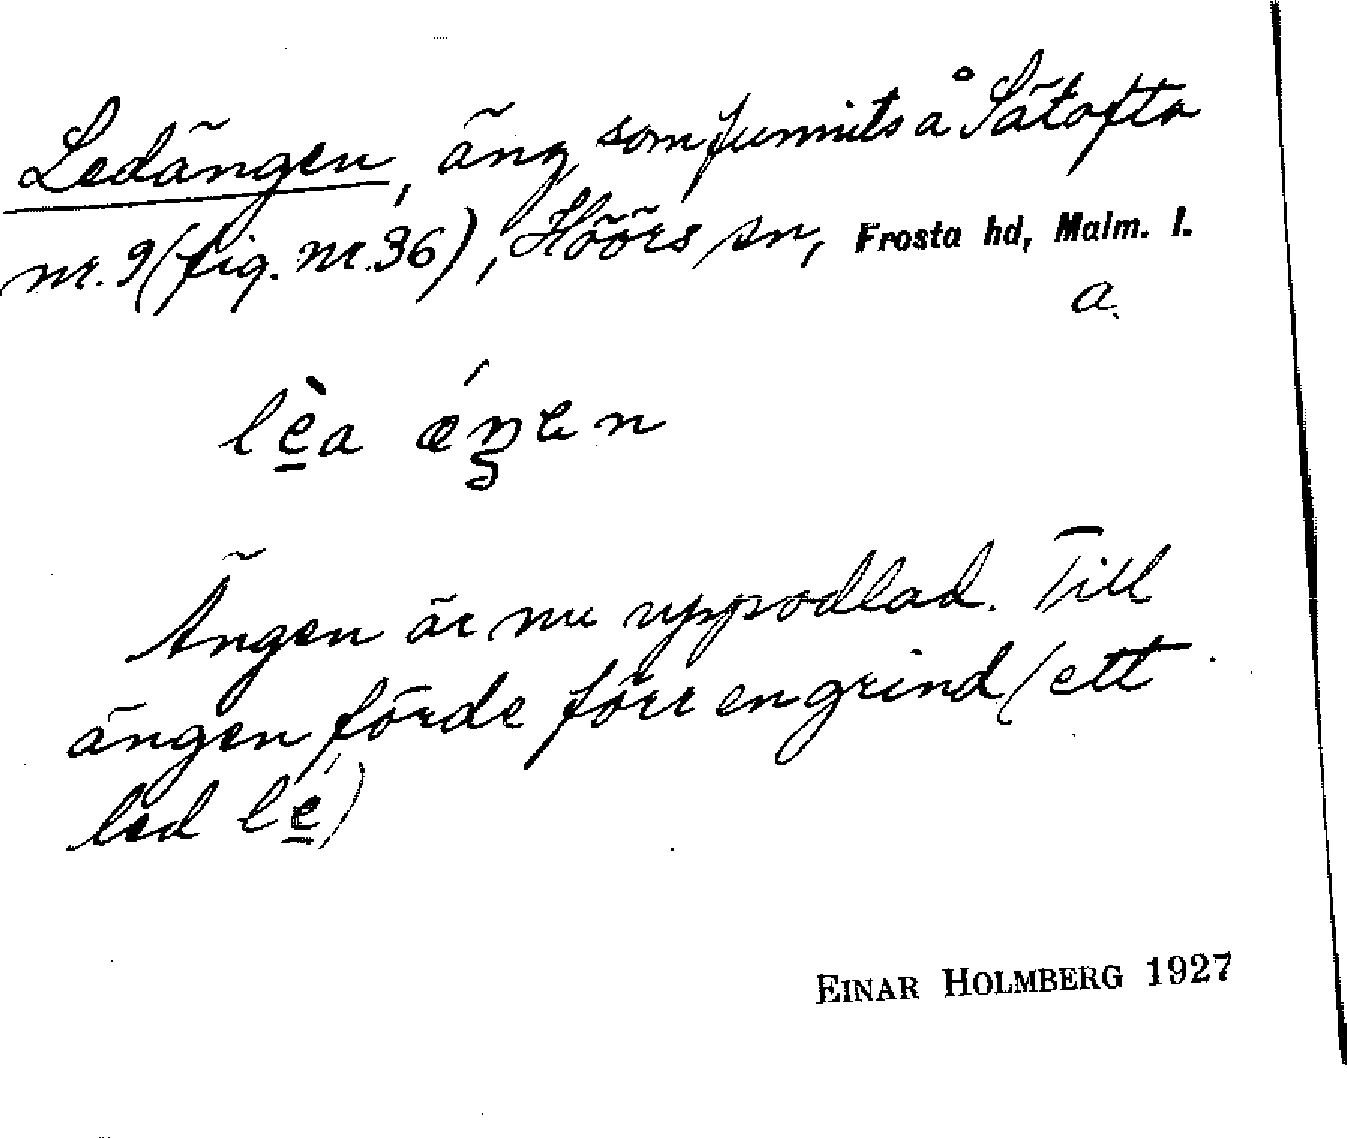 Ledängen, äng som funnits å Sätofta
nr. 9 (fig. nr. 36), Höörs sn, Frosta hd, Malm. l.
a.
lè̱a ǽŋen
Ängen är nu uppodlad. Till
ängen förde förr en grind (ett
led lé̱)
EINAR HOLMBERG 1927